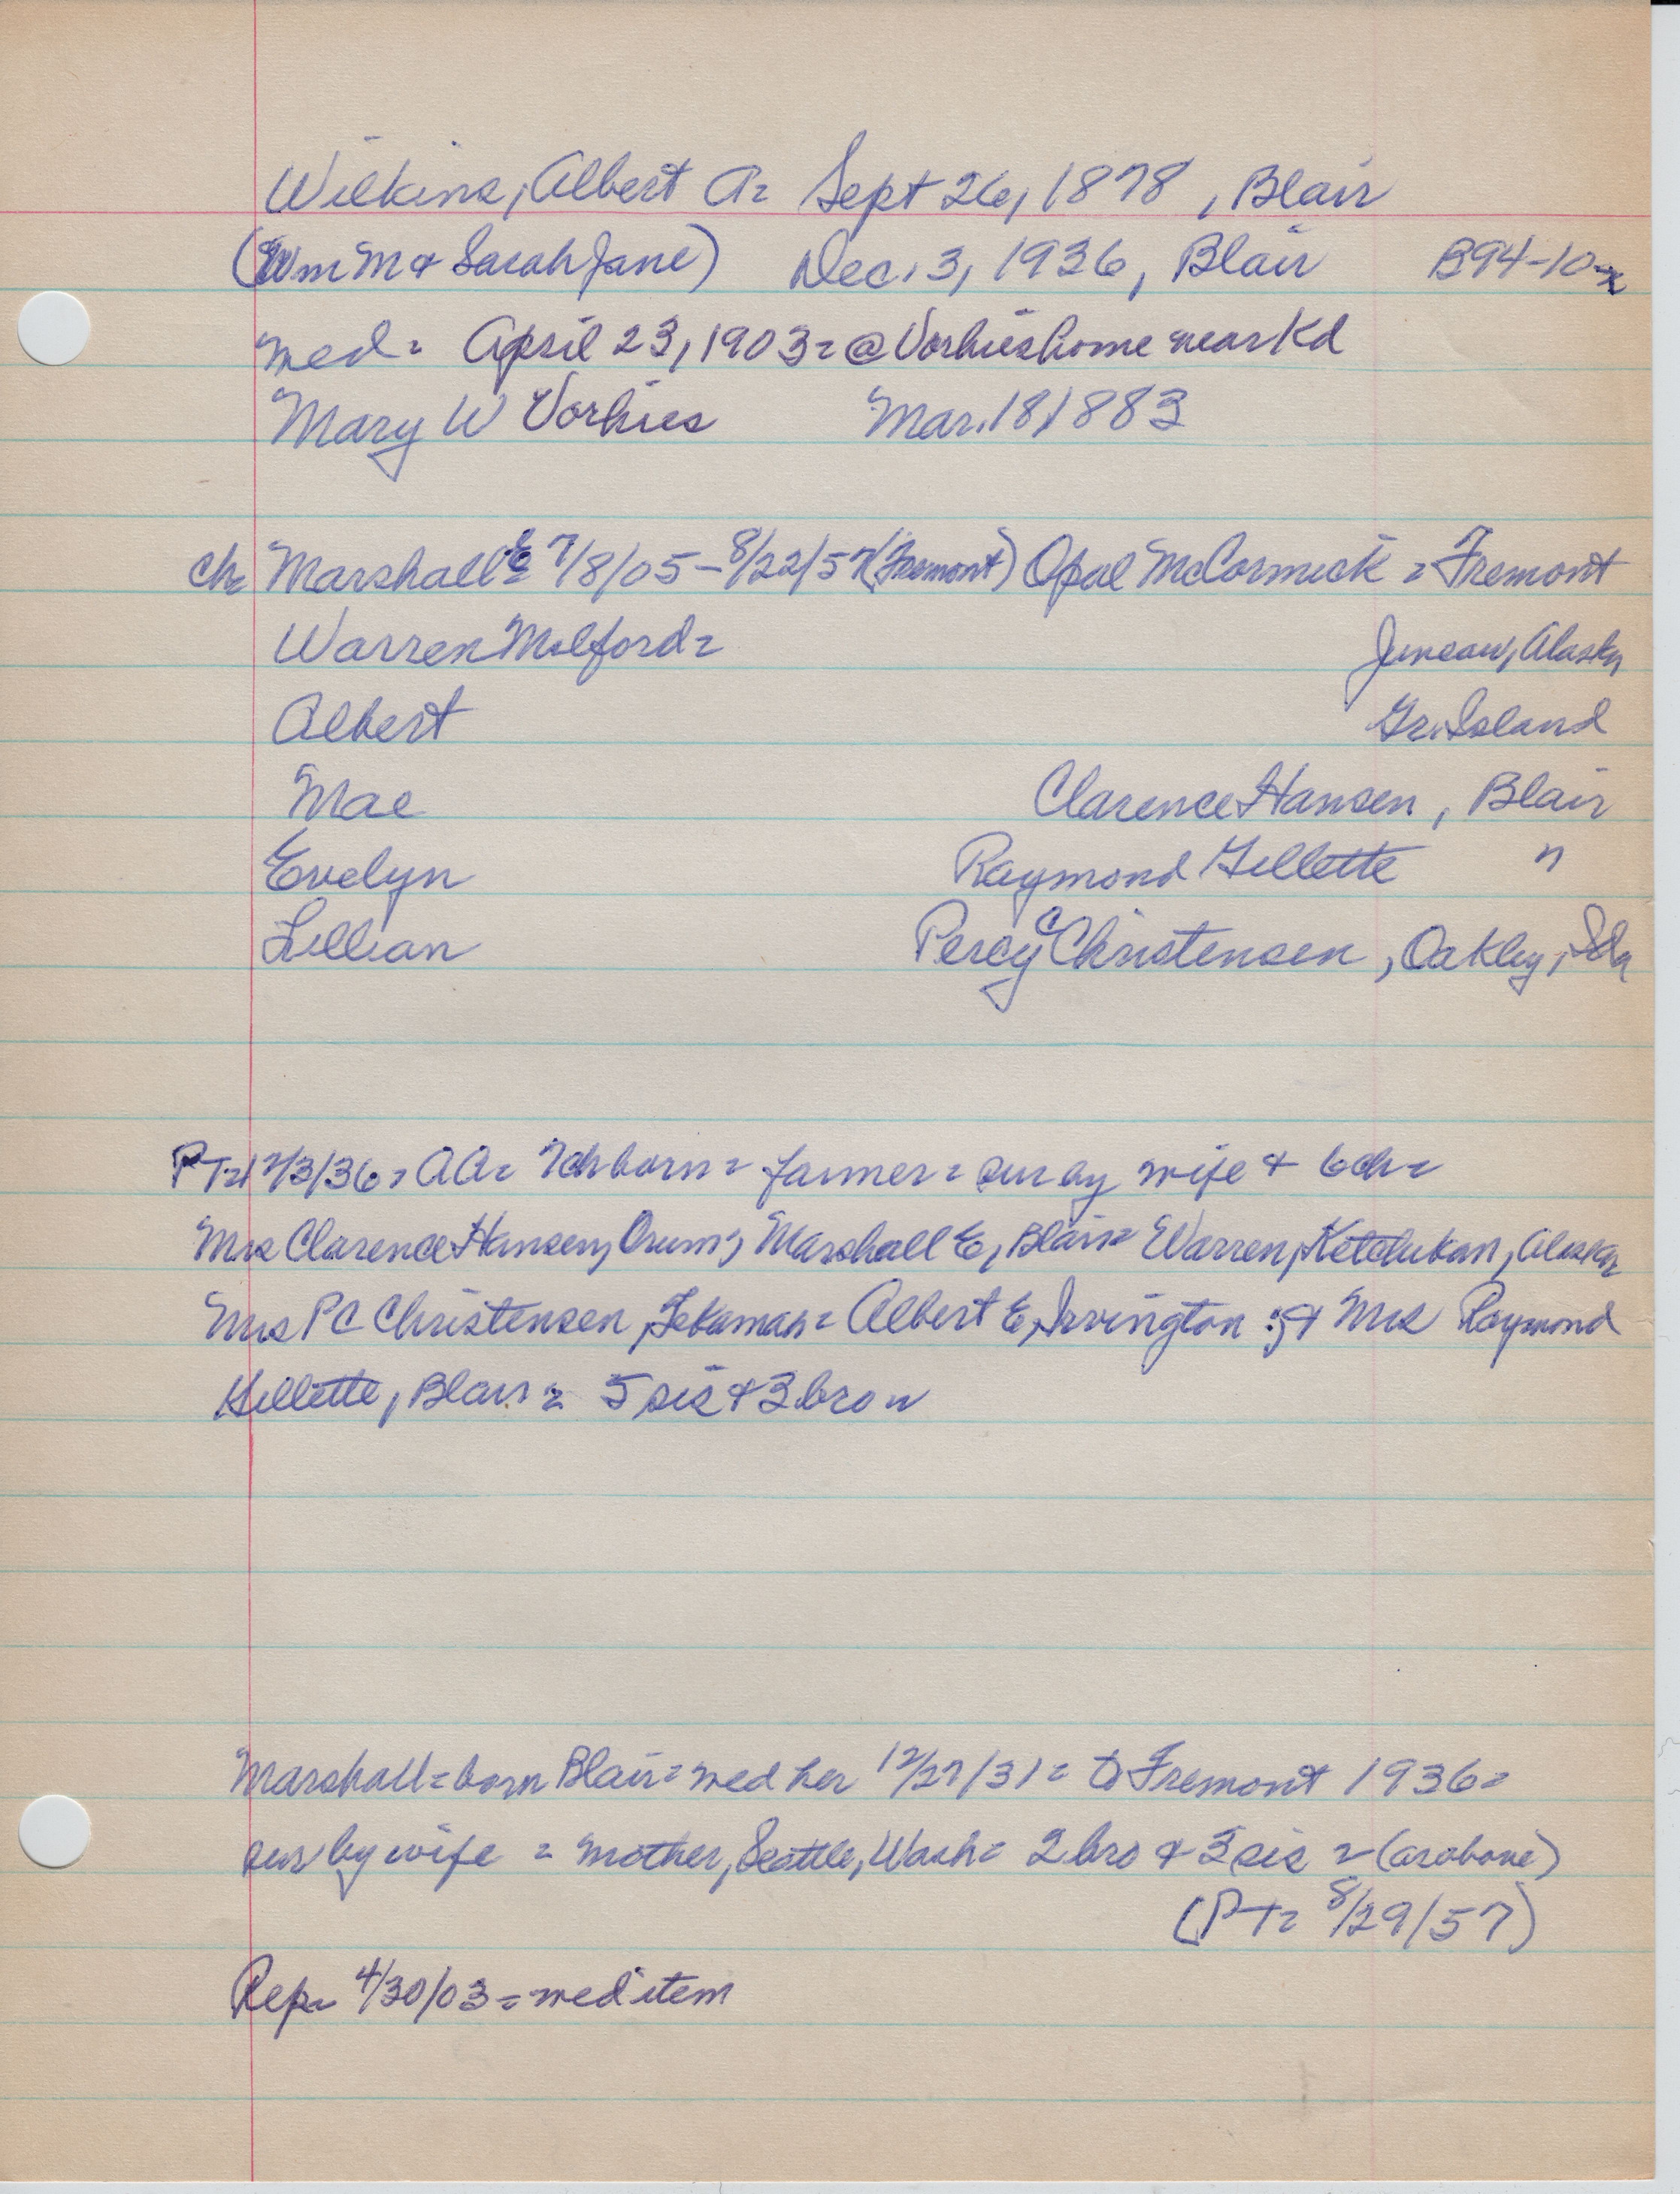 Wilkins, Albert A = Sept 26, 1878, Blair
(Wm M & Sarah Jane) Dec. 3, 1936, Blair B94-10-x
med = April 23, 1903 = @ Vorhies home near Kd
Mary W Vorhies Mar. 18 1883
ch = Marshall E 7/8/05 - 8/22/57 (Fremont) Opal McCormick = Fremont
Warren Milford = Juneau, Alaska
Albert Gr. Island
Mae Clarence Hansen, Blair
Evelyn Raymond Gillette "
Lillian Percy C Christensen, Oakley, Ida
PT = 12/3/36 = AA = 7 ch born = farmer = sur by wife & 6 ch =
Mrs Clarence Hansen, Orum; Marshall E, Blair = Warren, Ketchukan, Alaska
Mrs PC Christensen, Tekamah = Albert E, Irvington ; & Mrs Raymond
Gillette, Blair = 5 sis & 3 bro
Marshall = born Blair = med her 12/27/31 = to Fremont 1936 =
sur by wife = mother, Seattle, Wash = 2 bro & 3 sis = (as above)
(PT = 8/29/57)
Rep = 4/30/03 = med item